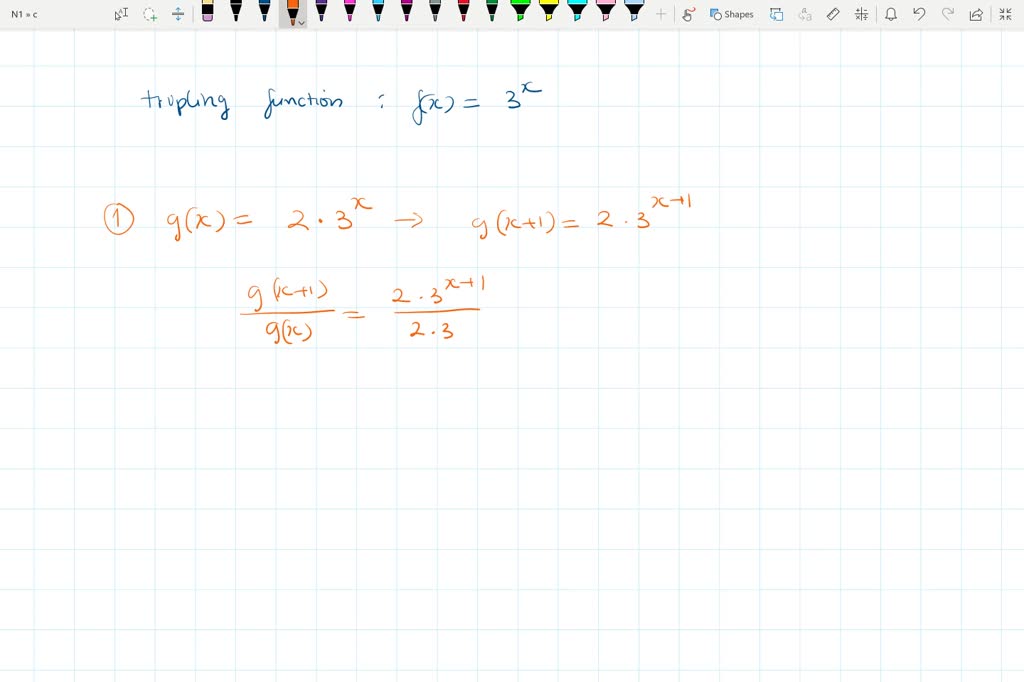 N1 » c
Shapes
tripling function : f(x) = 3^x
① g(x) = 2 · 3^x → g(x+1) = 2 · 3^{x+1}
g(x+1) / g(x) = 2 · 3^{x+1} / 2 · 3